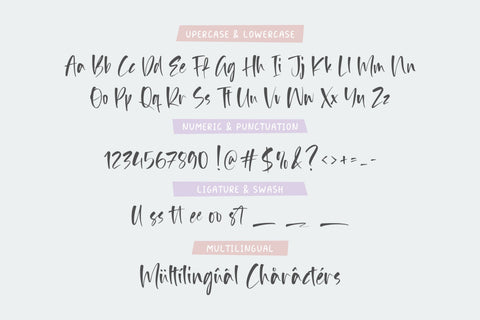 UPERCASE & LOWERCASE
Aa Bb Cc Dd Ee Ff Gg Hh Ii Jj Kk Ll Mm Nn
Oo Pp Qq Rr Ss Tt Uu Vv Ww Xx Yy Zz
NUMERIC & PUNCTUATION
1234567890 !@#$%&? <>+=_-
LIGATURE & SWASH
ll ss tt ee oo st _ _ _
MULTILINGUAL
Mültilingûál Chåråctérs